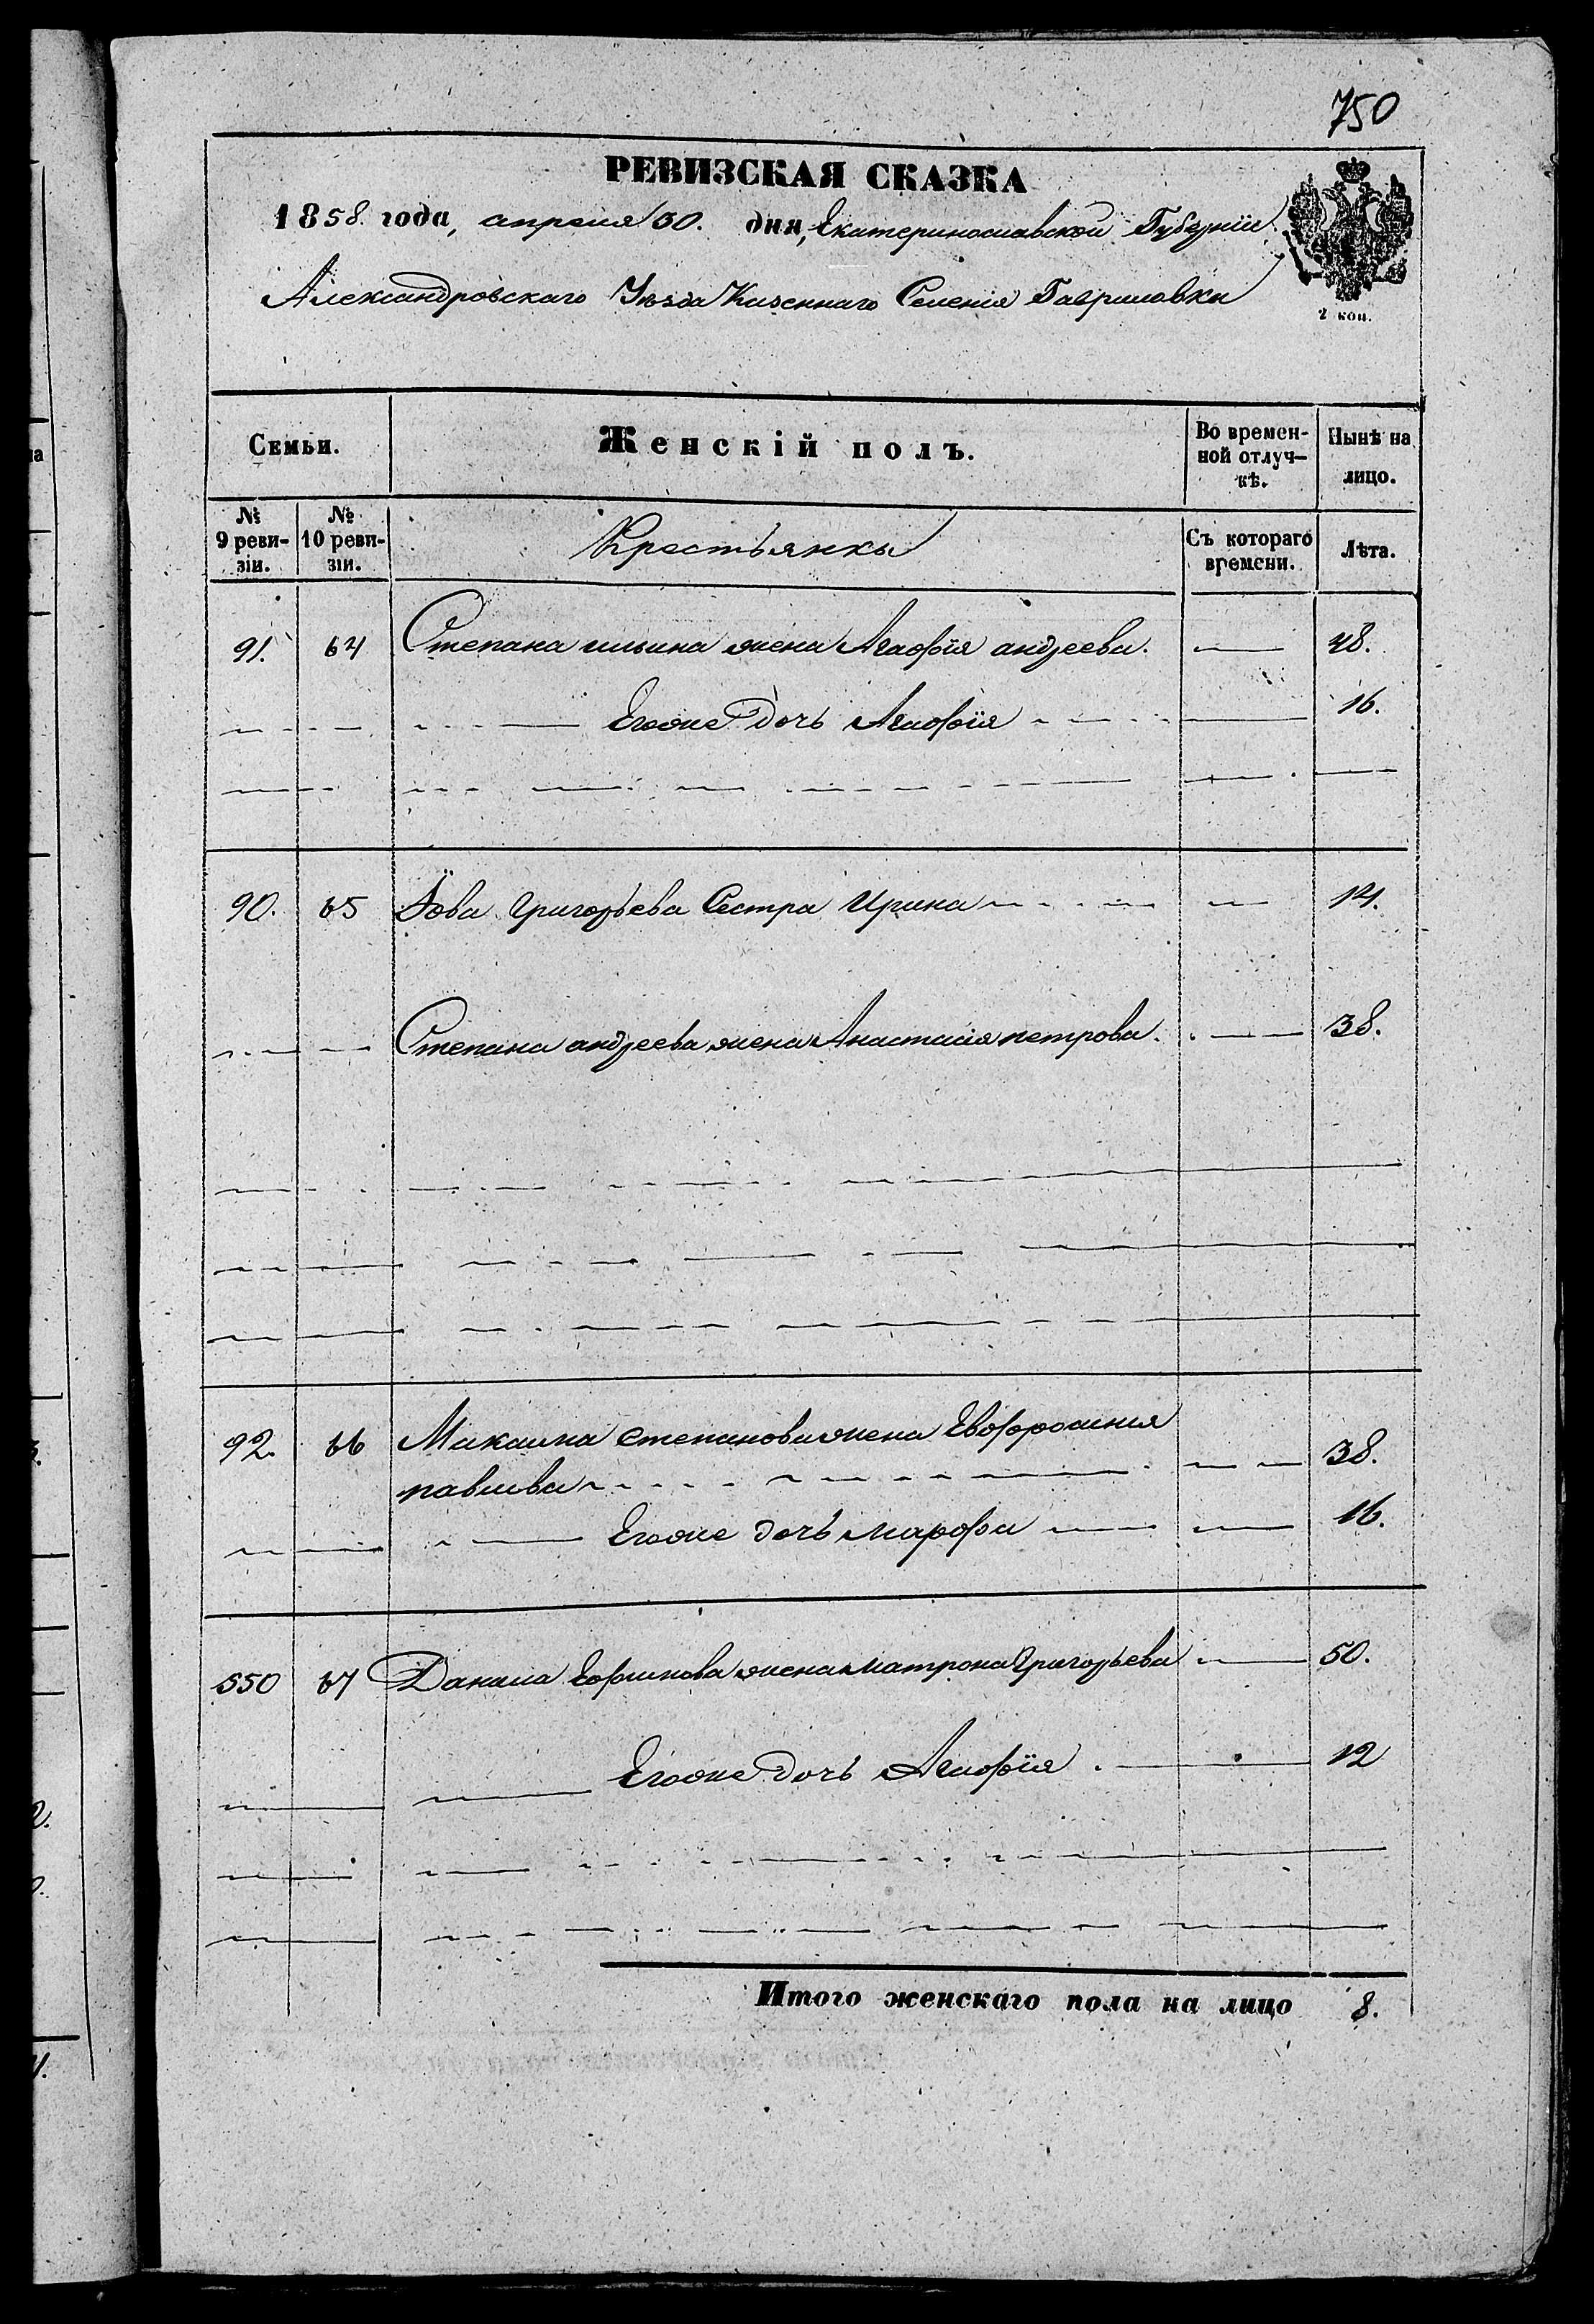 750
РЕВИЗСКАЯ СКАЗКА
1858 года, апреля 30. дня, Екатеринославской Губерніи
Александровскаго Уѣзда Казеннаго Селенія Гавриловки
2 коп.
Семьи. Женскій полъ. Во времен-ной отлуч-кѣ. Нынѣ на лицо.
№ 9 реви-зіи. № 10 реви-зіи. Крестьянки Съ котораго времени. Лѣта.
91. 64 Степана ильина жена Агафія андреева. 48.
Егоже дочь Агафія 16.
90. 65 Іова Григорьева Сестра Ирина 14.
Степана андреева жена Анастасія петрова. 38.
92. 66 Михаила степанова жена Евфросинія
павлова 38.
Егоже дочь марфа 16.
550 67 Данила Ефимова жена матрона Григорьева 50.
Егоже дочь Агафія. 12
Итого женскаго пола на лицо 8.